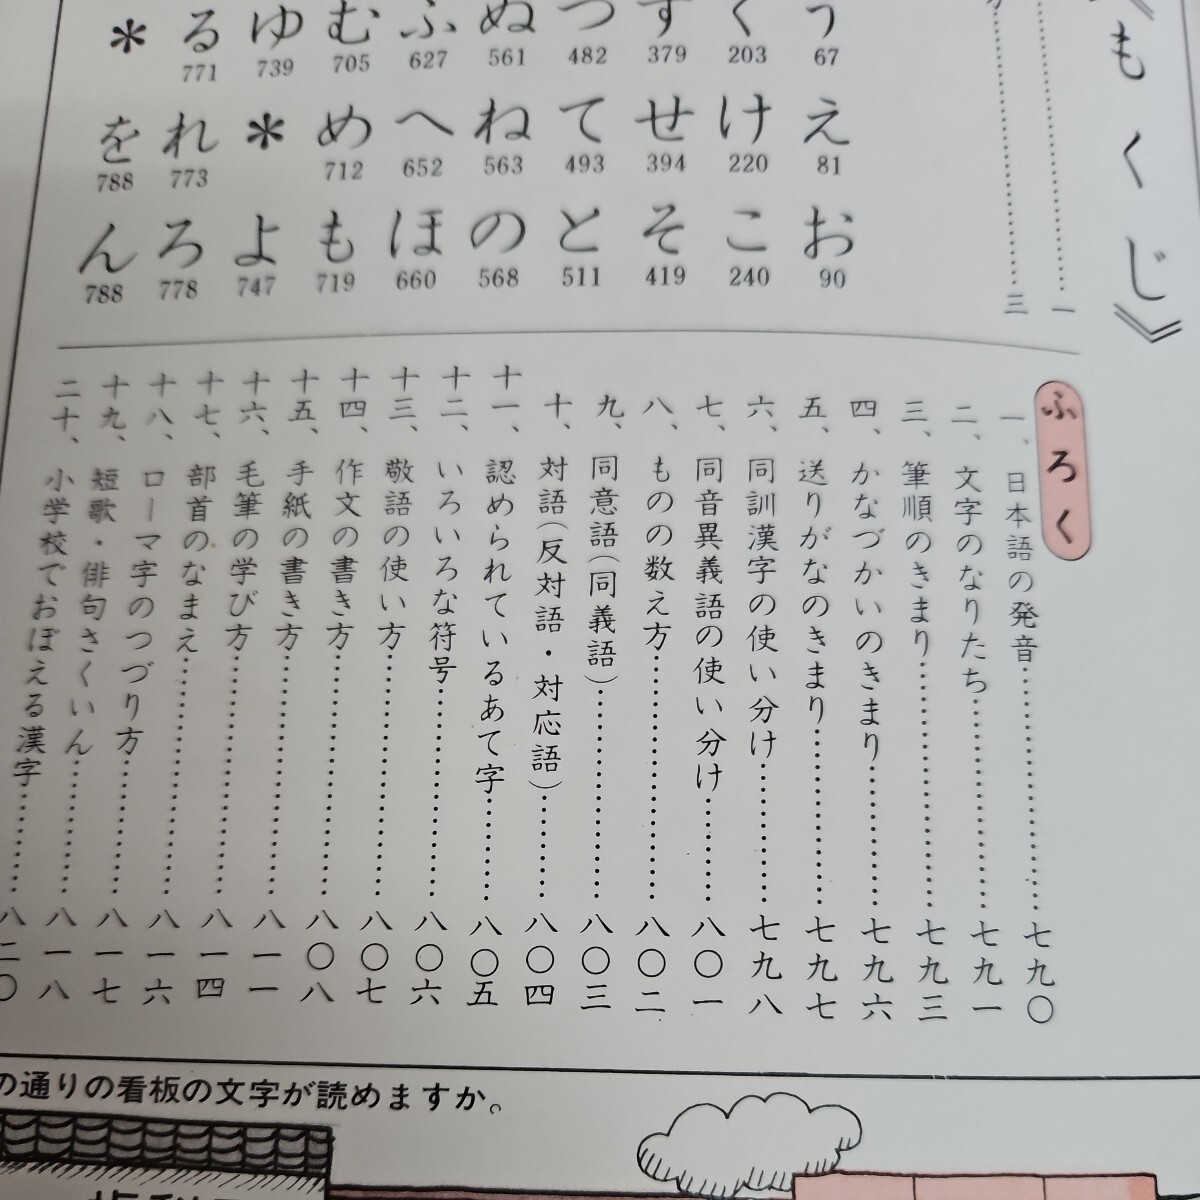 《もくじ》
一
三
う 67
く 203
す 379
つ 482
ぬ 561
ふ 627
む 705
ゆ 739
る 771
＊
え 81
け 220
せ 394
て 493
ね 563
へ 652
め 712
＊
れ 773
を 788
お 90
こ 240
そ 419
と 511
の 568
ほ 660
も 719
よ 747
ろ 778
ん 788
ふろく
一、日本語の発音……七九〇
二、文字のなりたち……七九一
三、筆順のきまり……七九三
四、かなづかいのきまり……七九六
五、送りがなのきまり……七九七
六、同訓漢字の使い分け……七九八
七、同音異義語の使い分け……八〇一
八、ものの数え方……八〇二
九、同意語（同義語）……八〇三
十、対語（反対語・対応語）……八〇四
十一、認められているあて字……八〇五
十二、いろいろな符号……八〇六
十三、敬語の使い方……八〇七
十四、作文の書き方……八〇八
十五、手紙の書き方……八一一
十六、毛筆の学び方……八一四
十七、部首のなまえ……八一六
十八、ローマ字のつづり方……八一七
十九、短歌・俳句さくいん……八一八
二十、小学校でおぼえる漢字……八二〇
の通りの看板の文字が読めますか。